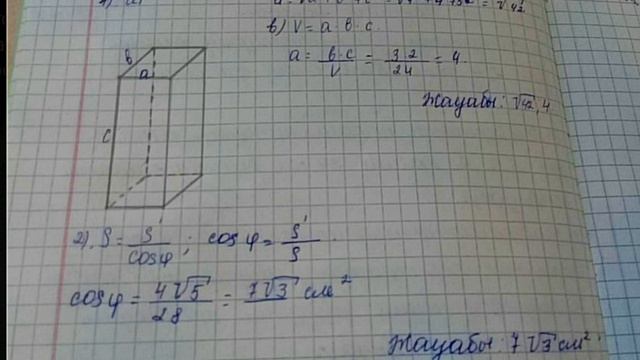 в) V = a · в · c.
a = в·c/V = 3·2/24 = 4
Жауабы: √42, 4
в
a
c
2). S = S'/cosφ ; cosφ = S'/S.
cosφ = 4√5/28 = 7√3 см²
Жауабы: 7√3 см²